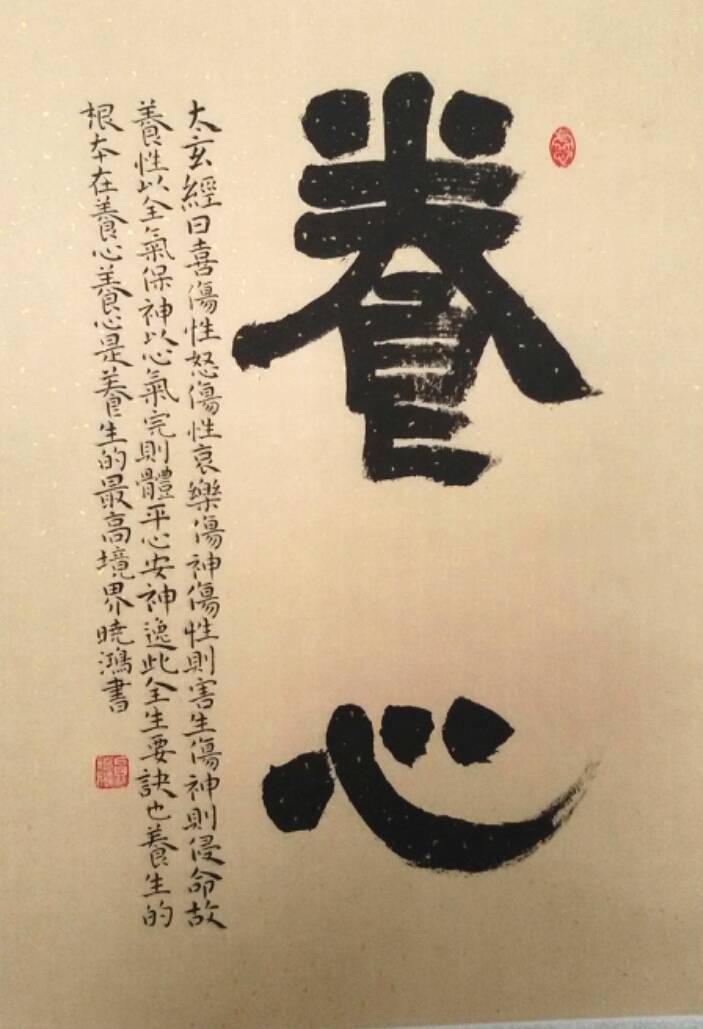 養心
太玄經曰喜傷性怒傷性哀樂傷神傷性則害生傷神則侵命故
養性以全氣保神以心氣完則體平心安神逸此全生要訣也養生的
根本在養心養心是養生的最高境界曉鴻書